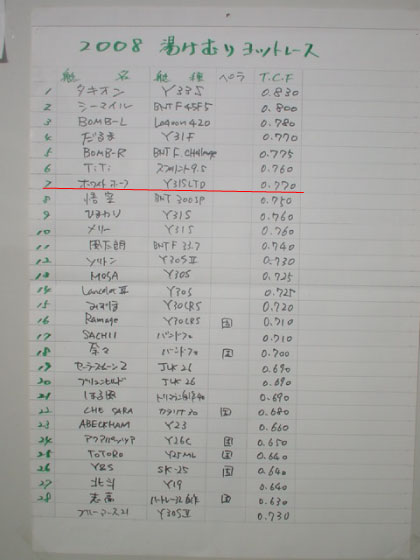 2008 湯けむりヨットレース
艇 名 艇 種 ペラ T.C.F
1 タキオン Y33S 0.830
2 シースマイル BNT F45F5 0.800
3 BOMB-L Lagoon 420 0.780
4 だるま Y31F 0.770
5 BOMB-R BNT F. Challenge 0.775
6 TiTi スプリント9.5 0.760
7 ホワイト Y31SLTD 0.770
8 悟空 BNT 300SP 0.750
9 ひまわり Y31S 0.760
10 メリー Y31S 0.760
11 風太朗 BNT F 33.7 0.740
12 ソリトン Y30SII 0.730
13 MOSA Y30S 0.725
14 Lancelot II Y30S 0.725
15 Y30CRS 0.720
16 Ramage Y30CRS 0.710
17 SACHII バンド30 0.710
18 奈々 バンド30 0.700
19 セーラームーン2 J/K 26 0.690
20 J/K 26 0.690
21 0.690
22 CHE SARA カタリナ30 0.680
23 ABECKHAM Y23 0.660
24 Y26C 0.650
25 TOTORO Y25ML 0.640
26 Y&S SK-25 0.640
27 北斗 Y19 0.640
28 志高 0.630
ブルーノース21 Y30SII 0.730